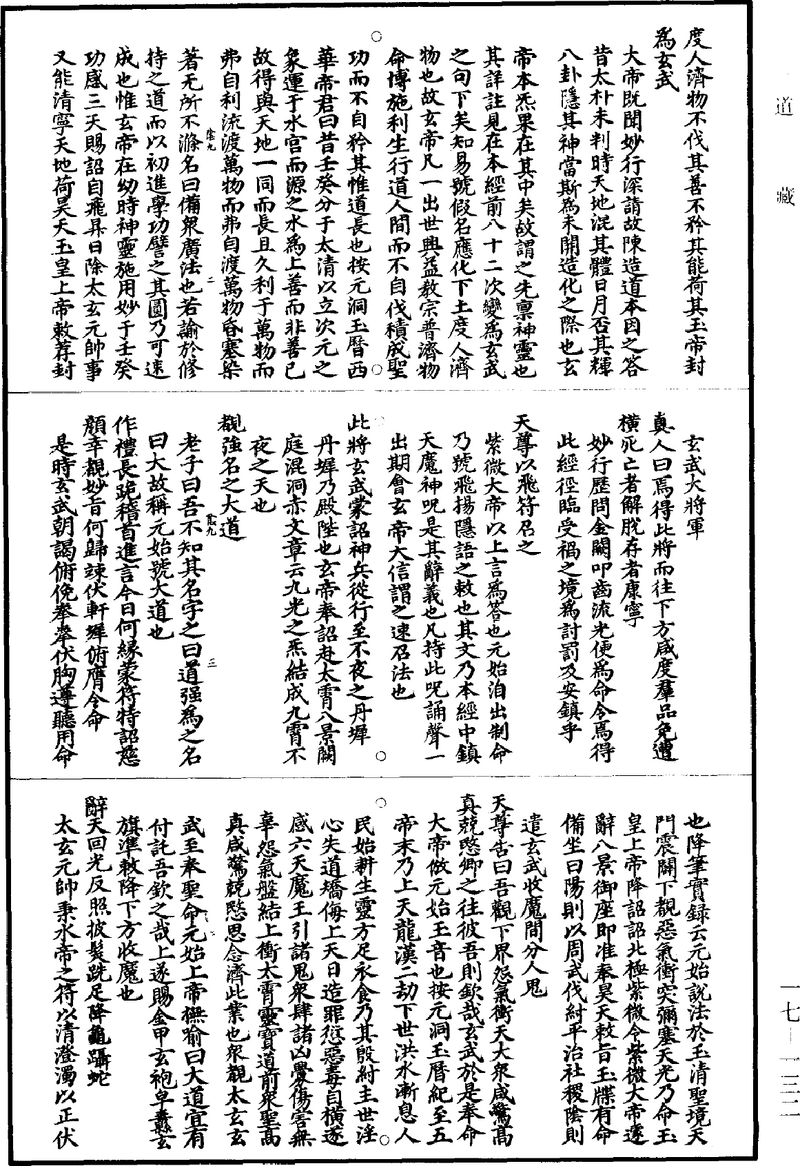 道藏
度人濟物不伐其善不矜其能荷其玉帝封
為玄武
大帝既聞妙行深請故陳造道本因之答
昔太朴未判時天地混其體日月否其輝
八卦隱其神當斯為未開造化之際也玄
帝本炁果在其中矣故謂之先稟神靈也
其詳註見在本經前八十二次變為玄武
之句下矣知易號假名應化下土度人濟
物也故玄帝凡一出世興益教宗普濟物
命博施利生行道人間而不自伐積成聖
功而不自矜其惟道長也按元洞玉曆西
華帝君曰昔壬癸分于太清以立次元之
象運于水宮而源之水為上善而非善已
故得與天地一同而長且久利于萬物而
弗自利流渡萬物而弗自渡萬物昏塞染
著无所不滌名曰備眾廣法也若諭於修
持之道而以初進學功譬之其圓乃可速
成也惟玄帝在幼時神靈施用妙于壬癸
功感三天賜詔自飛昇日除太玄元帥事
又能清寧天地荷昊天玉皇上帝敕荐封
玄武大將軍
真人曰焉得此將而往下方咸度羣品免遭
橫死亡者解脫存者康寧
妙行歷問金闕叩齒流光便為命令焉得
此經徑臨受禍之境為討罰及安鎮乎
天尊以飛符召之
紫微大帝以上言為答也元始洎出制命
乃號飛揚隱語之敕也其文乃本經中鎮
天魔神呪是其辭義也凡持此呪誦聲一
出期會玄帝大信謂之速召法也
此將玄武蒙詔神兵從行至不夜之丹墀
丹墀乃殿陛也玄帝奉詔赴太霄八景闕
庭混洞赤文章云九光之炁結成九霄不
夜之天也
觀強名之大道
老子曰吾不知其名字之曰道强為之名
曰大故稱元始號大道也
作禮長跪稽首進言今日何緣蒙符特詔慈
顏幸觀妙旨何歸竦伏軒墀俯膺令命
是時玄武朝謁俯俛拳拳伏胸遵聽用命
也降筆實録云元始說法於玉清聖境天
門震闢下觀惡氣衝突彌塞天光乃命玉
皇上帝降詔詔北極紫微今紫微大帝遂
辭八景御座即准奉昊天敕旨玉牒有命
備坐曰陽則以周武伐紂平治社稷陰則
遣玄武收魔間分人鬼
天尊告曰吾觀下界怨氣衝天大衆咸驚高
真兢愍卿之往彼吾則欽哉玄武於是奉命
大帝倣元始玉音也按元洞玉曆紀至五
帝末乃上天龍漢二劫下世洪水漸息人
民始耕生靈方足永食乃其殷紂主世淫
心失道矯侮上天日造罪愆惡毒自橫遂
感六天魔王引諸鬼衆肆諸凶䘲傷害無
辜怨氣盤結上衝太霄靈寶道前衆聖高
真咸驚兢愍思念濟此業也衆觀太玄玄
武至奉聖命元始上帝撫諭曰大道宜有
付託吾欽之哉上遂賜金甲玄袍皁纛玄
旗準敕降下方收魔也
辭天回光反照披髮跣足降龜躡蛇
太玄元帥秉水帝之符以清澄濁以正伏
一七—一三二